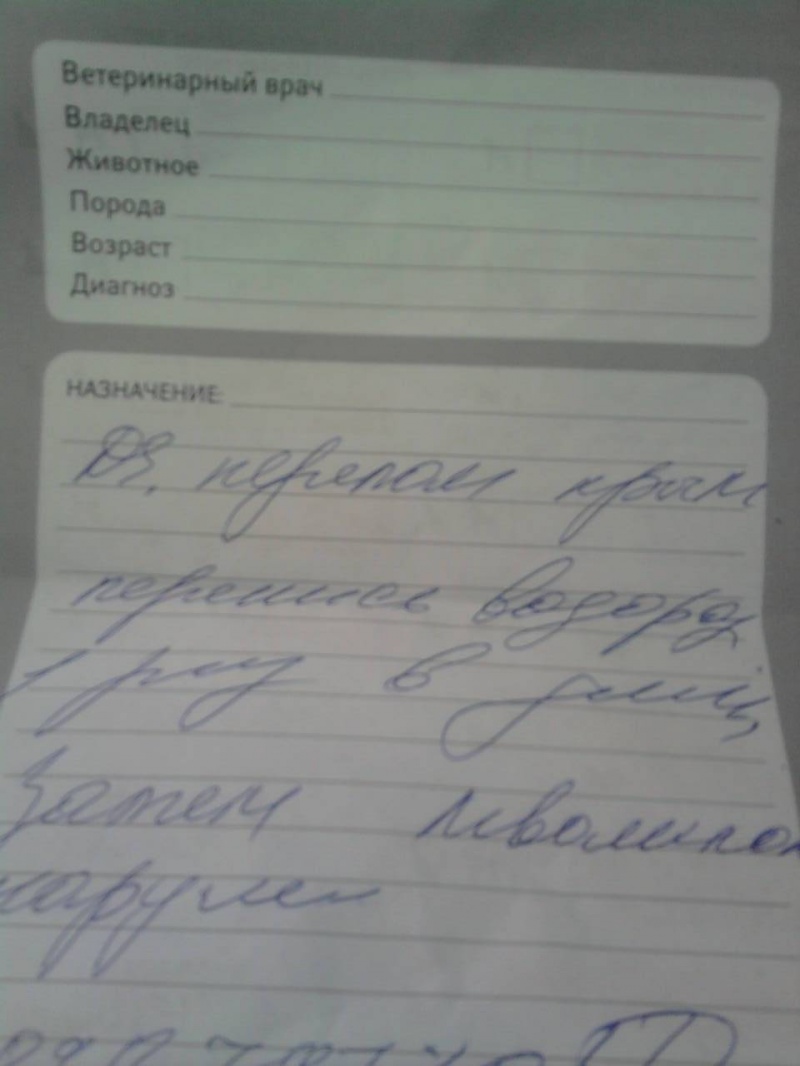 Ветеринарный врач
Владелец
Животное
Порода
Возраст
Диагноз
НАЗНАЧЕНИЕ:
DS. перелом крыл
перекись водород
1 раз в день,
Затем левомикол
наружно